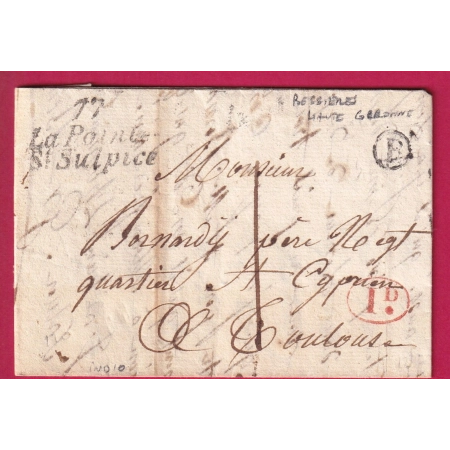 77
La Pointe
St Sulpice
BESSIERES
HAUTE GARONNE
E
Monsieur
1
Bernardy père Negt
quartier St Cyprien
1D.
A Toulouse
INDIO